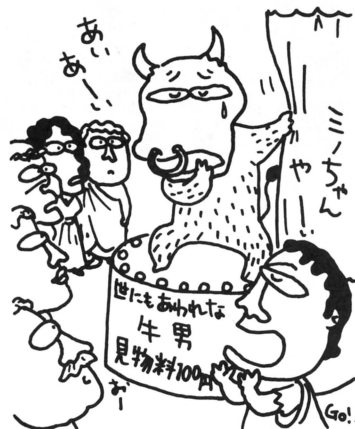 あぃ
あ〜ぃ
ミノちゃん
や〜
世にもあわれな
牛男
見物料100円
おー
Go!